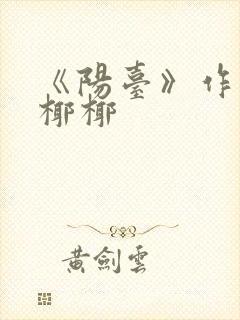 《陽臺》作
椰椰
黃劍雲